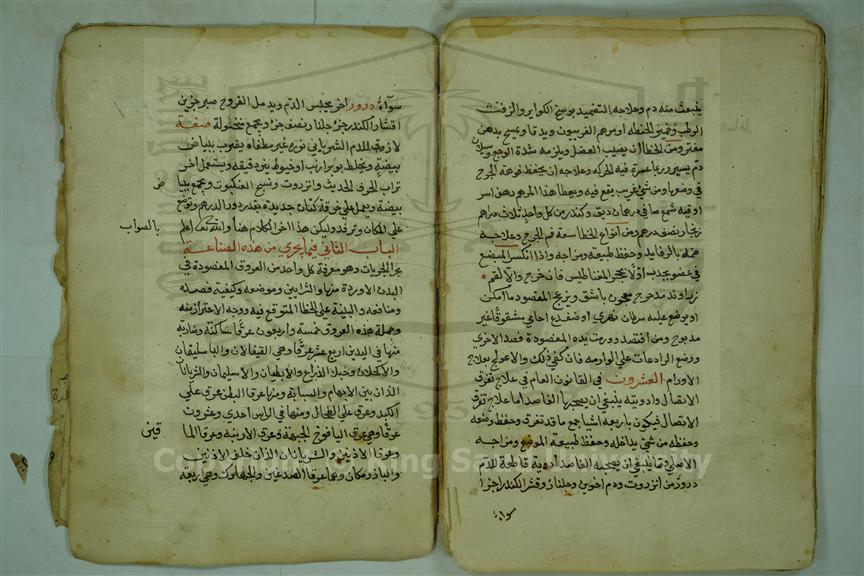 ينبعث منه دم وعلاجه التضميد بوسخ الكواير والزفت
الرطب وخمير الحنطه او مرهم الفربيون ويدقا ويمسح بدهن
مفتر ومن الخطا ان يصيب العضل ويلزمه شدة الوجع وسيلان
دم يسير وربما عسرة فيه الحركه وعلاجه ان يحفظ فوهة الجرح
في وضعها ومن شي غريب يقع فيه ويعطا هذا المرهم دهن اس
اوقيه شمع صافي درهمان دبق وكندر من كل واحد ثلاث دراهم
زنجار نصف درهم ومن انواع الخطا سعة فم الجرح وعلاجه
ضمه بالرفايد وحفظ طبيعته ومزاجه واذا انكسر المبضع
في عضو يجذب اولا بحجر المغناطيس فان خرج والا لقم
زراوند مدحرج معجون باشق ويزعج المفصود ما امكن
او يوضع عليه سرطان نهري او ضفدع اجامي مشقوقا غير
مذبوح ومن افتصد وورمت يده المفصودة فصد الاخري
ووضع الرادعات علي الوارمه فان كفي ذلك والا عولج بعلاج
الاورام العشرون في القانون العام في علاج تفرق
الاتصال وادويته ينبغي ان يصحبها الفاصد اما علاج تفرق
الاتصال فيكون باربعه اشيا جمع ما قد تفرق وحفظ وضعه
وحفظه من شي يداخله وحفظ طبيعته الموضع ومزاجه
الاصلي ومما ينبغي ان يصحبه الفاصد ادوية قاطعة للدم
درور من انزروت ودم اخوين وجلنار وقشر الكندر اجزا
سوا
سوآء درور اخر يحبس الدم ويدمل القروح صبر جزين
اقشار الكندر جزء جلنار نصف جزء ويجمع منخولة صفة
لازوق للدم الشرياني نوره غير مطفاه يضرب ببياض
بيضة ويخلط بوبر ارنب او خيوط بعد دقيقه ويستعمل اخر
تراب الخرف الحديث وانزروت ونسج العنكبوت ويجمع ببيا
ض
بيضة ويعمل علي خرقة كتان جديده بقدر دور الدرهم وتوضع
علي المكان وترفد وليكن هذا اخر الكلام هنا والله تعالي اعلم
بالصواب
الباب الثاني فيما يجري من هذه الصناعة
مجري الجزيات وهو معرفة كل واحد من العروق المفصودة في
البدن الاوردة منها والشرايين وموضعه وكيفية فصده
ومنافعه والبينة علي الخطا المتوقع فيه ووجه الاحتراز منه
وجملة هذه العروق خمسة واربعون عرقا ساكنة وضاربة
منها في اليدين اربع عشر عرقا وهي القيفالان والباسليقان
والاكحلان وحبلا الذراع والابطيان والاسليمان والشريانا
الذان بين الابهام والسبابة ومنها عرقا البطن عرق علي
الكبد وعرق علي الطحال ومنها في الراس احدي وعشرون
عرقا وهي عرق اليافوخ الجبهة وعرق الارنبة وعرقا الما
قين
وعرقا الاذنين والشريانان الذان خلف الاذنين
والباذومكان وهما عرقا الصدغين والجهارك وهي اربعة